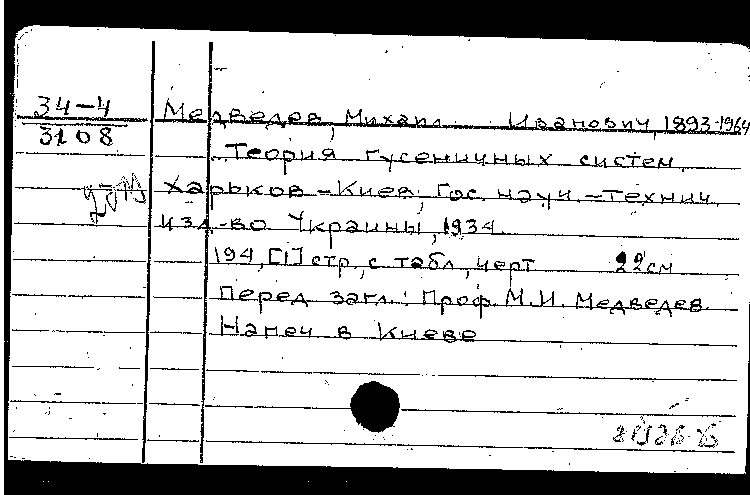 34-4
3108
Медведев, Михаил Иванович, 1893-1964
Теория гусеничных систем.
Харьков-Киев, Гос. науч.-технич.
изд-во Украины, 1934.
194, [1] стр., с табл., черт 22 см
Перед загл.: Проф. М.И. Медведев.
Напеч в Киеве